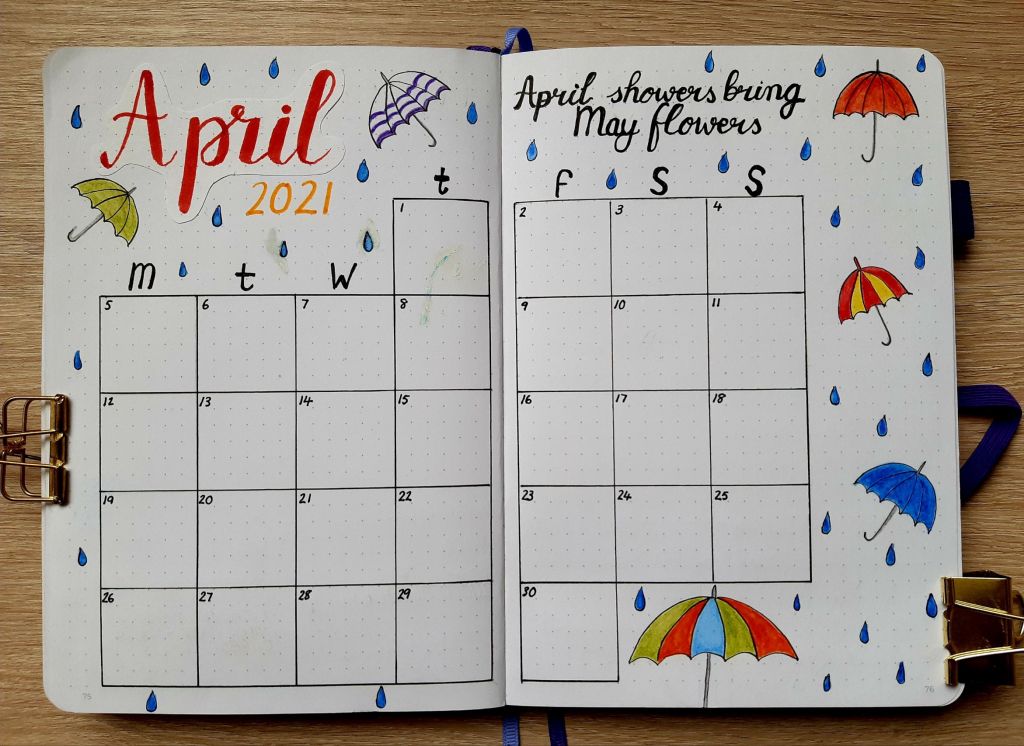 April
2021
April showers bring
May flowers
m t W t f S S
1 2 3 4
5 6 7 8 9 10 11
12 13 14 15 16 17 18
19 20 21 22 23 24 25
26 27 28 29 30
75 76